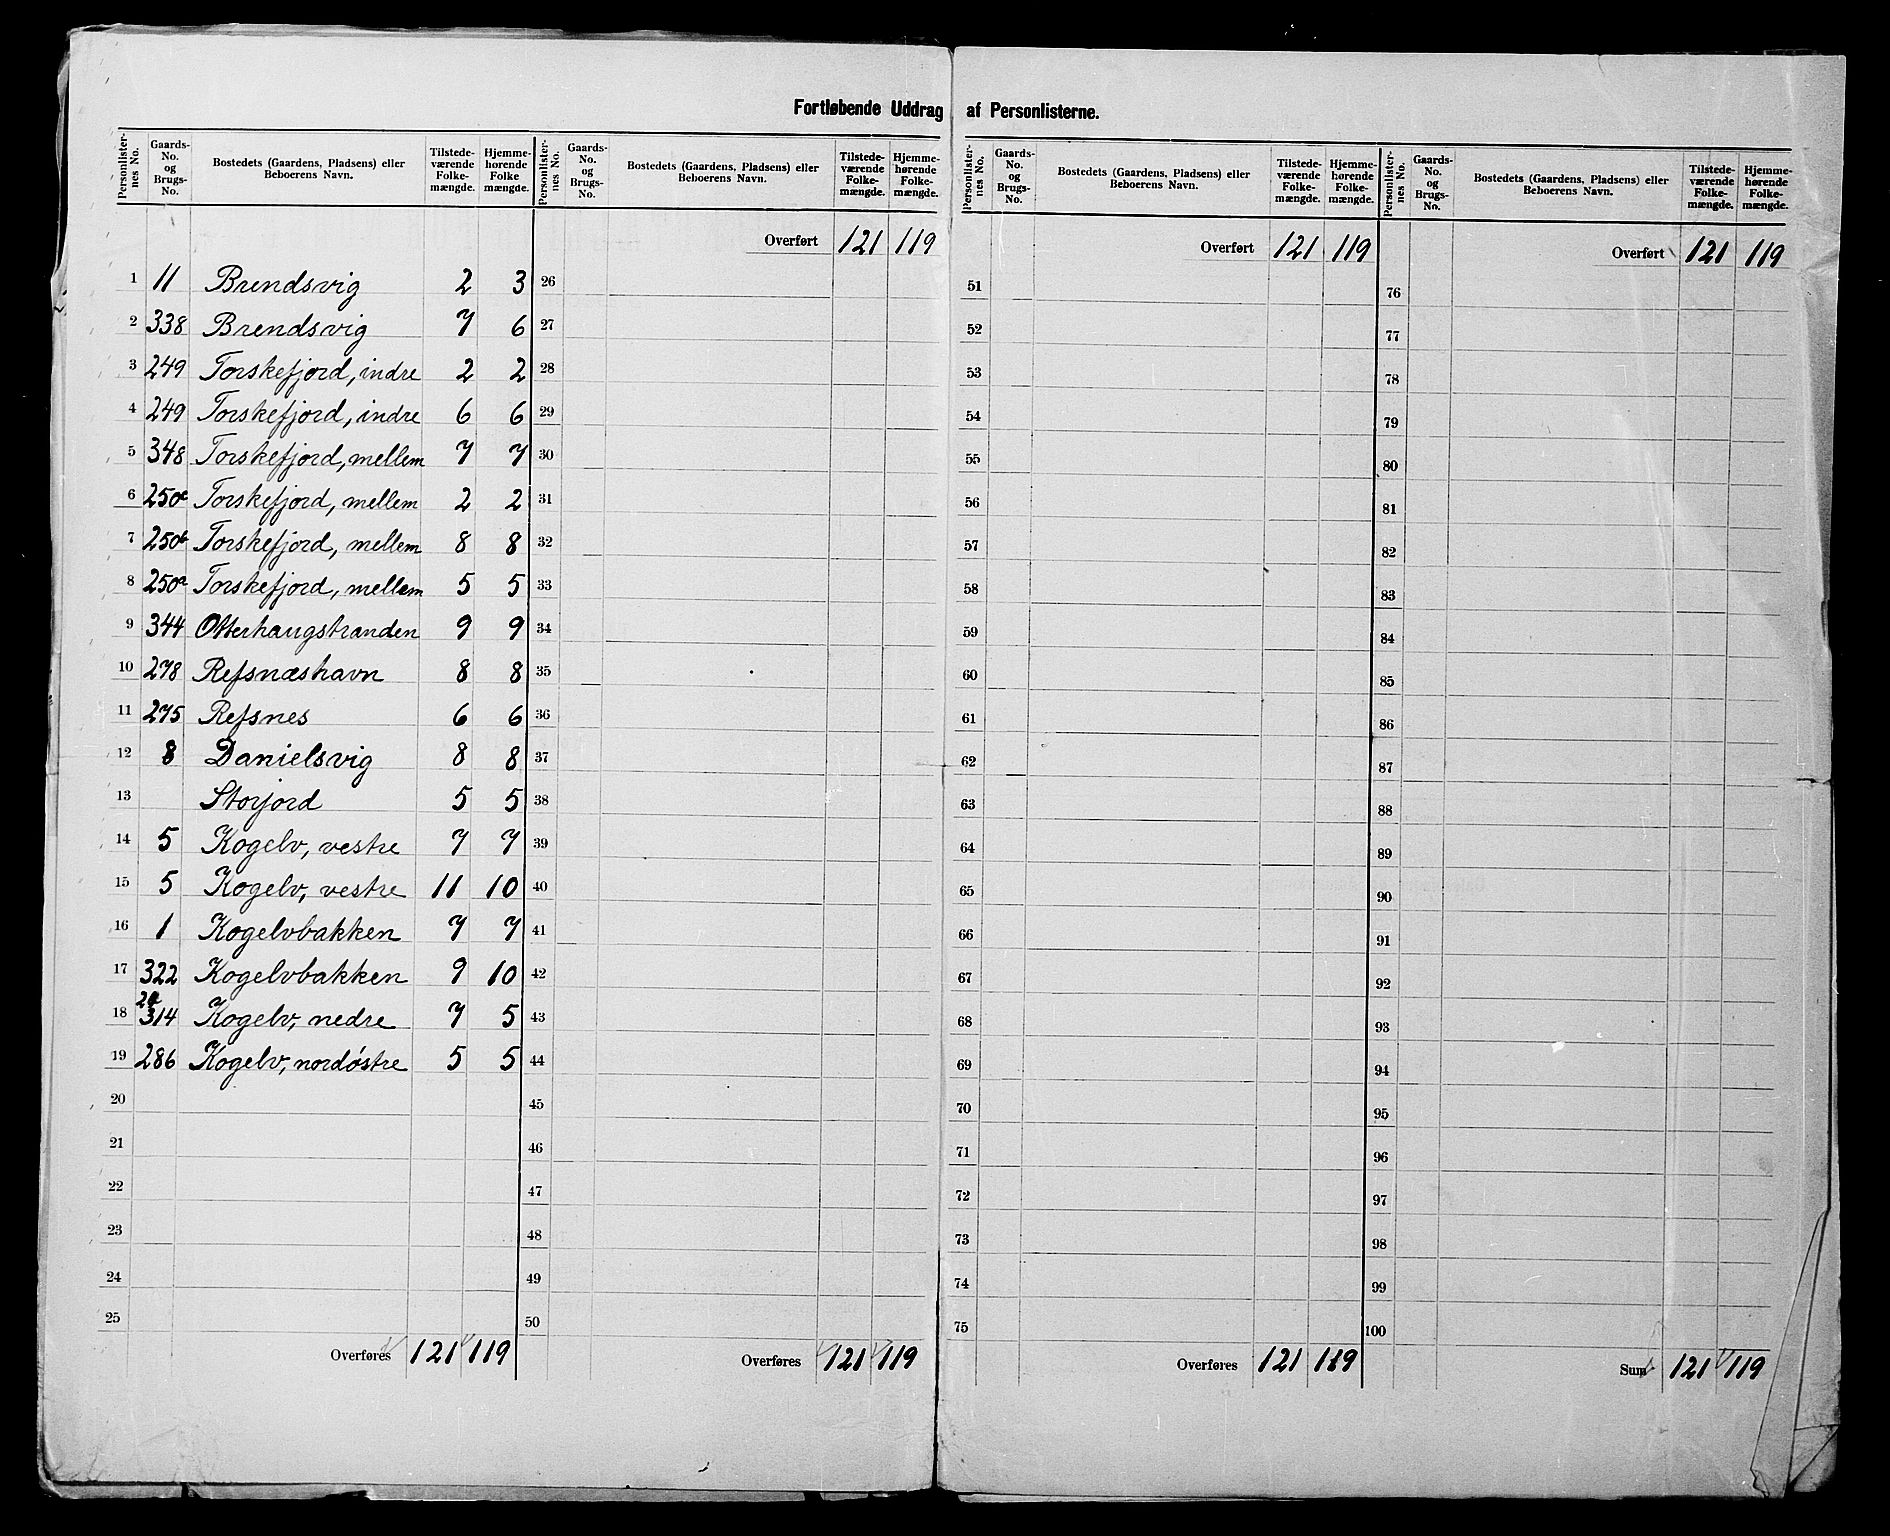 Fortløbende Uddrag af Personlisterne.
Personlister-nes No. | Gaards-No. og Brugs-No. | Bostedets (Gaardens, Pladsens) eller Beboerens Navn. | Tilstede-værende Folke-mængde. | Hjemme-hørende Folke mængde.
1 11 Brendsvig 2 3
2 338 Brendsvig 7 6
3 249 Torskefjord, indre 2 2
4 249 Torskefjord, indre 6 6
5 348 Torskefjord, mellem 7 7
6 250c Torskefjord, mellem 2 2
7 250b Torskefjord, mellem 8 8
8 250a Torskefjord, mellem 5 5
9 344 Otterhaugstranden 9 9
10 278 Refsnæshavn 8 8
11 275 Refsnes 6 6
12 8 Danielsvig 8 8
13 Storjord 5 5
14 5 Kogelv, vestre 7 7
15 5 Kogelv, vestre 11 10
16 1 Kogelvbakken 7 7
17 322 Kogelvbakken 9 10
18 2a 314 Kogelv, nedre 7 5
19 286 Kogelv, nordøstre 5 5
20
21
22
23
24
25
Overføres 121 119
Personlister-nes No. | Gaards-No. og Brugs-No. | Bostedets (Gaardens, Pladsens) eller Beboerens Navn. | Tilstede-værende Folke-mængde. | Hjemme-hørende Folke-mængde.
Overført 121 119
26
27
28
29
30
31
32
33
34
35
36
37
38
39
40
41
42
43
44
45
46
47
48
49
50
Overføres 121 119
Personlister-nes No. | Gaards-No. og Brugs-No. | Bostedets (Gaardens, Pladsens) eller Beboerens Navn. | Tilstede-værende Folke-mængde. | Hjemme-hørende Folke-mængde.
Overført 121 119
51
52
53
54
55
56
57
58
59
60
61
62
63
64
65
66
67
68
69
70
71
72
73
74
75
Overføres 121 119
Personlister-nes No. | Gaards-No. og Brugs-No. | Bostedets (Gaardens, Pladsens) eller Beboerens Navn. | Tilstede-værende Folke-mængde. | Hjemme-hørende Folke-mængde.
Overført 121 119
76
77
78
79
80
81
82
83
84
85
86
87
88
89
90
91
92
93
94
95
96
97
98
99
100
Sum 121 119